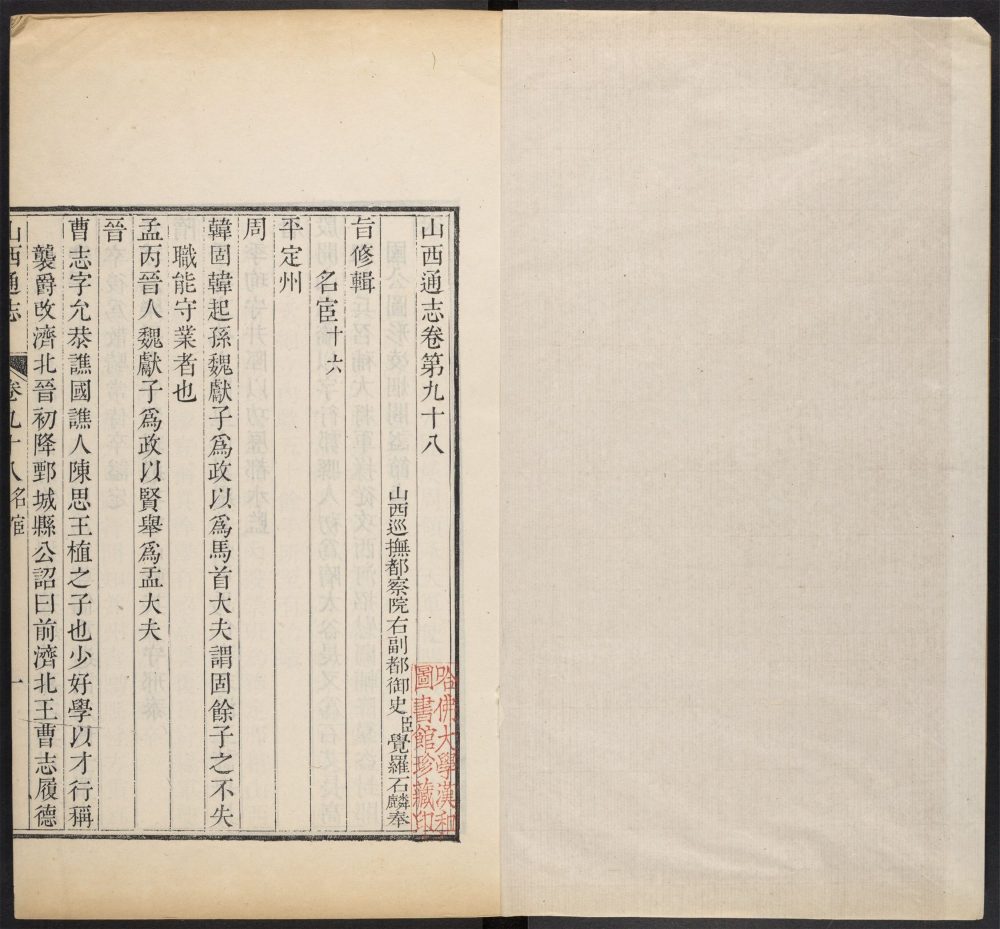 山西通志卷第九十八
山西巡撫都察院右副都御史臣覺羅石麟奉
旨修輯
名宦十六
平定州
周
韓固韓起孫魏獻子爲政以爲馬首大夫謂固餘子之不失
職能守業者也
孟丙晉人魏獻子爲政以賢舉爲盂大夫
晉
曹志字允恭譙國譙人陳思王植之子也少好學以才行稱
襲爵改濟北晉初降鄄城縣公詔曰前濟北王曹志履德
山西通志 卷九十八名宦 一
哈佛大學漢和
圖書館珍藏印